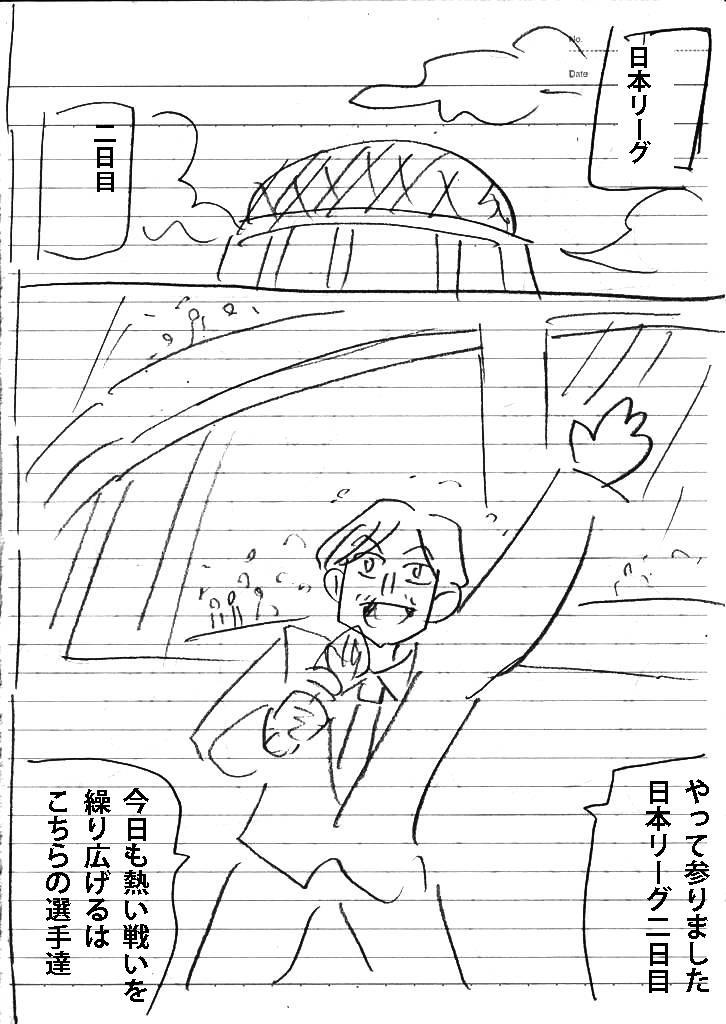 No.
Date
日本リーグ
二日目
やって参りました
日本リーグ二日目
今日も熱い戦いを
繰り広げるは
こちらの選手達